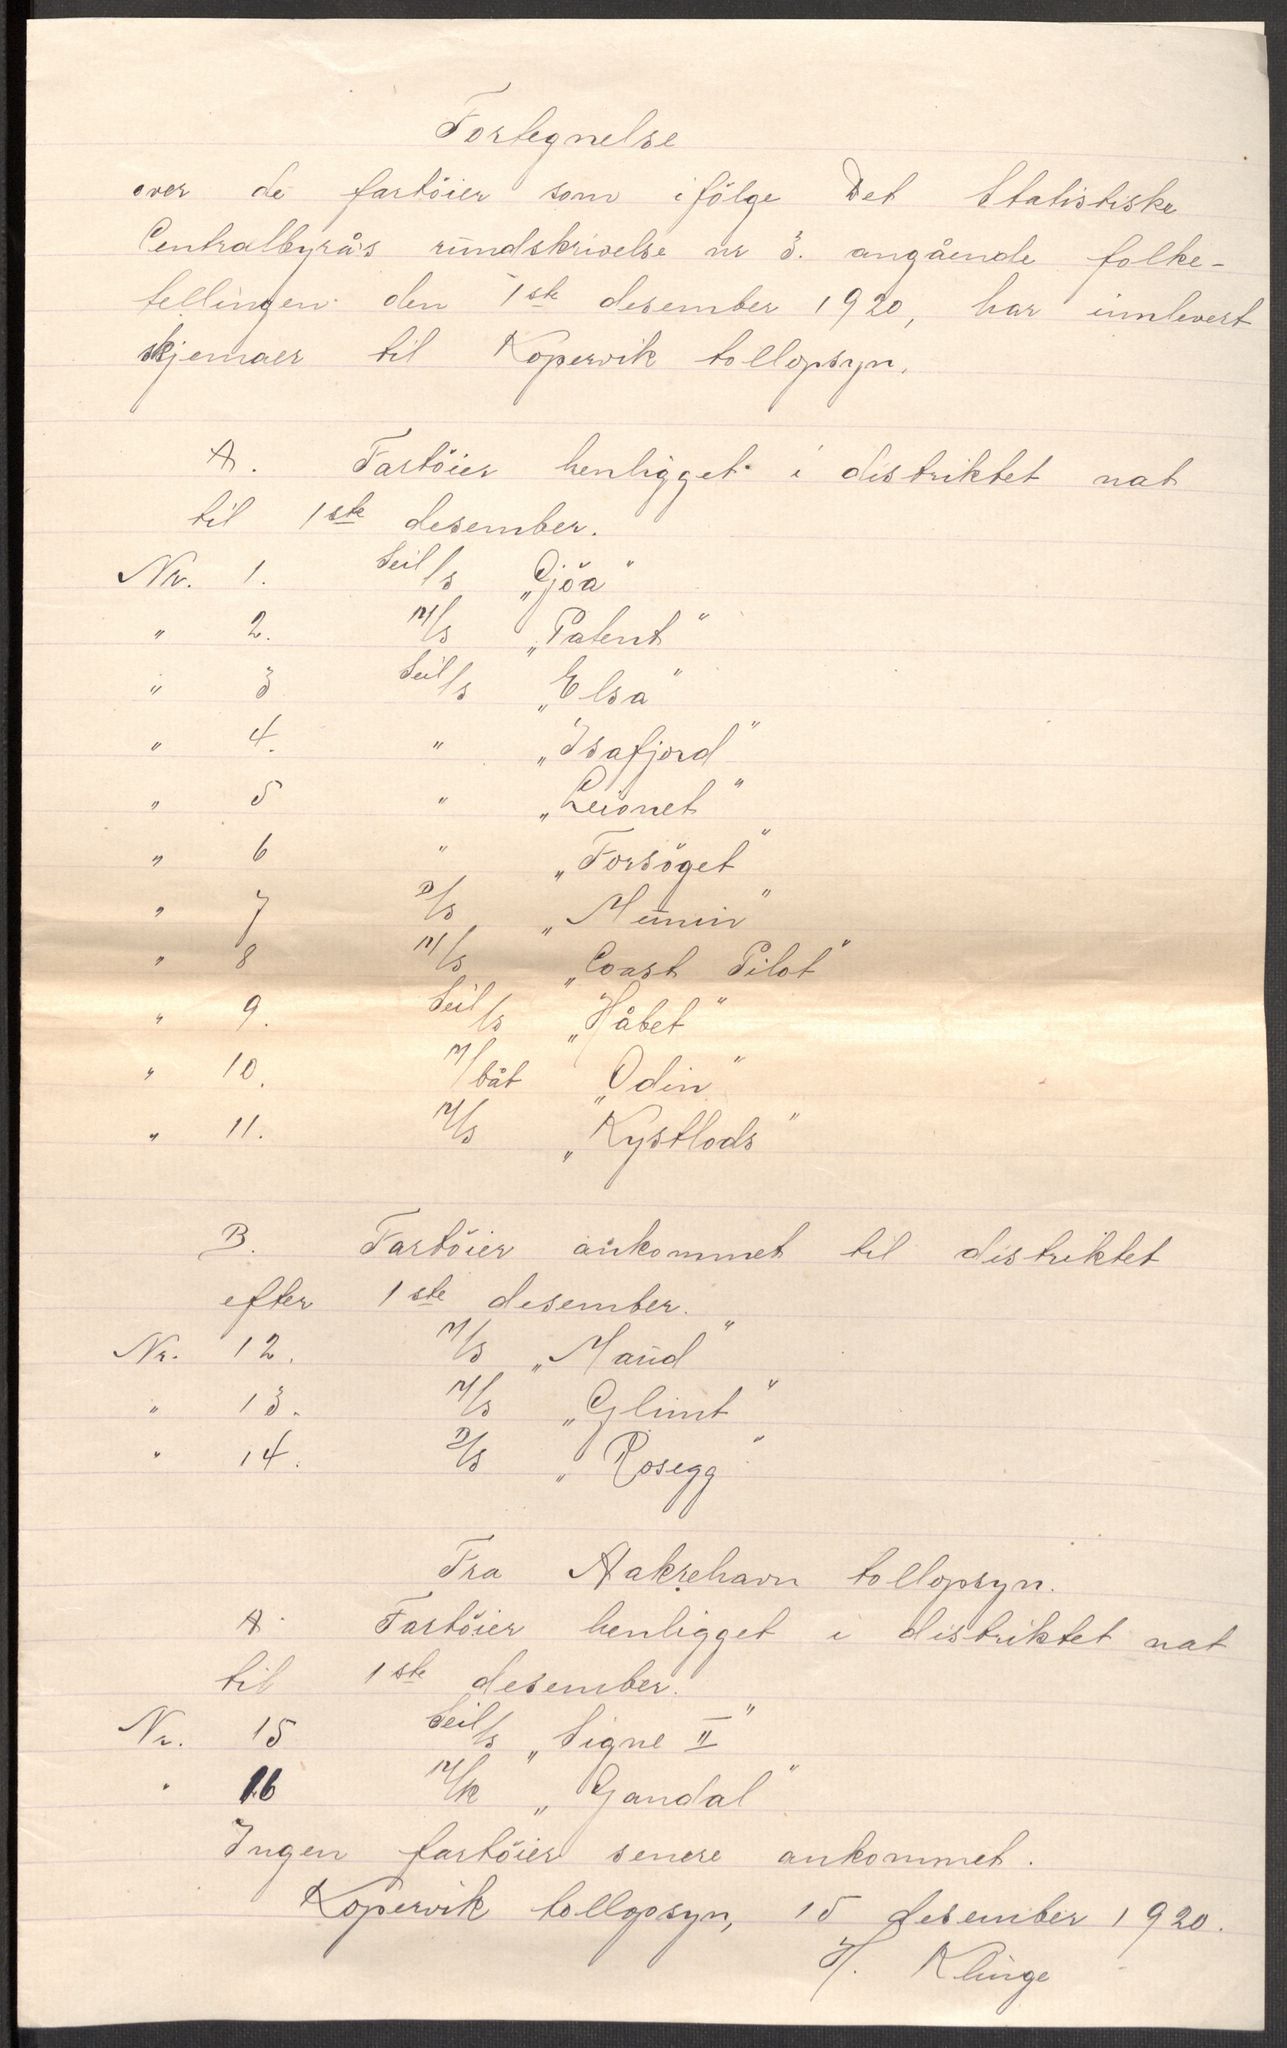 Fortegnelse
over de fartöier som ifölge Det Statistiske
Centralbyrå's rundskrivelse nr 3. angående folke-
tellingen den 1ste desember 1920, har innlevert
skjemaer til Kopervik tollopsyn.
A. Fartöier henligget i distriktet nat
til 1ste desember.
Nr. 1. Seil/s „Gjöa"
" 2. M/S „Patent"
" 3 Seil/s „Elsa"
" 4. " „Isafjord"
" 5 " „Leionet"
" 6 " „Forsöget"
" 7 D/S „Munin"
" 8 M/S „Coast Pilot"
" 9. Seil/s „Håbet"
" 10. M/båt „Odin"
" 11. M/S „Kystlods"
B. Fartöier ankommet til distriktet
efter 1ste desember.
Nr. 12. M/S „Maud"
" 13. M/S „Glimt"
" 14. D/S „Rosegg"
Fra Aakrehavn tollopsyn.
A Fartöier henligget i distriktet nat
til 1ste desember.
Nr. 15 Seil/s „Signe II"
" 16 M/K „Gandal"
Ingen fartöier senere ankommet.
Kopervik tollopsyn, 15 desember 1920.
H. Klinge